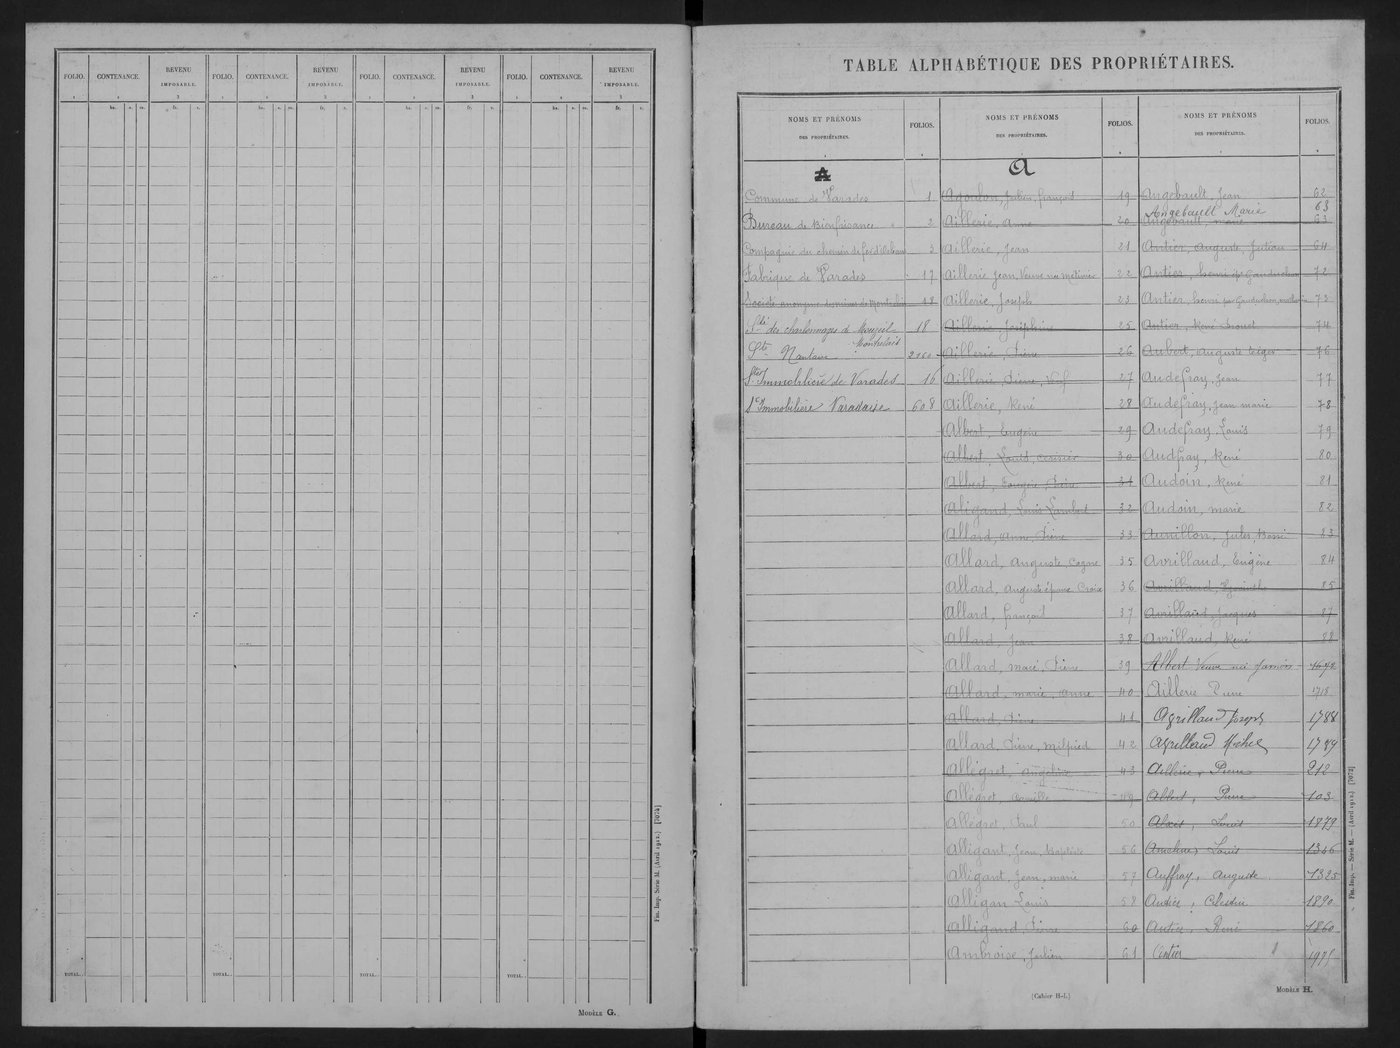 FOLIO. CONTENANCE. REVENU IMPOSABLE. FOLIO. CONTENANCE. REVENU IMPOSABLE. FOLIO. CONTENANCE. REVENU IMPOSABLE. FOLIO. CONTENANCE. REVENU IMPOSABLE.
ha. a. ca. fr. c. ha. a. ca. fr. c. ha. a. ca. fr. c. ha. a. ca. fr. c.
TOTAL. TOTAL. TOTAL. TOTAL.
Fin. Imp. Série M. (Avril 1912.) [7074]
MODÈLE G.
TABLE ALPHABÉTIQUE DES PROPRIÉTAIRES.
NOMS ET PRÉNOMS DES PROPRIÉTAIRES. FOLIOS. NOMS ET PRÉNOMS DES PROPRIÉTAIRES. FOLIOS. NOMS ET PRÉNOMS DES PROPRIÉTAIRES. FOLIOS.
A
Commune de Varades 1
Bureau de Bienfaisance 2
Compagnie du chemin de fer d'Orléans 3
Fabrique de Varades 17
Société anonyme des mines de 18
Sté des charbonnages de Mouzeil Montrelais 18
Sté Nantaise 2160
Sté Immobilière de Varades 16
Sé Immobilière Varadaise 608
A
Julien, françois 19
Aillerie, anne 20
Aillerie, Jean 21
Aillerie Jean, Veuve née 22
Aillerie, Joseph 23
Aillerie, Joséphine 25
Aillerie, Pierre 26
Aillerie, Pierre, 27
Aillerie, René 28
Albert, Eugène 29
Albert, Louis, 30
Albert, Pierre 31
Aligand, Louis Lambert 32
Allard, anne, Pierre 33
Allard, auguste, 35
Allard, auguste épouse Croix 36
Allard, françois 37
Allard, Jean 38
Allard, marie, Pierre 39
Allard, marie, anne 40
Allard, Pierre 41
Allard, Pierre, milpied 42
Allegret, angelis 43
Allegret, Camille 49
Allegret, Paul 50
Alligant, Jean, Baptiste 56
Alligant, Jean, marie 57
Alligan Louis 58
Alligand, Pierre 60
Ambroise, Julien 61
Angebault, Jean 62
Angebault Marie 63
Angebault, marie 63
Antier, Auguste, 64
Antier, henri 72
Antier, henri 73
Antier, René 74
Aubert, auguste 76
Audefray, Jean 77
Audefray, Jean marie 78
Audefray, Louis 79
Audfray, René 80
Audoin, René 81
Audoin, marie 82
Aunillon, Jules, 83
Avrillaud, Eugène 84
Avrillaud, Hyacinthe 85
Avrillaud Jacques 87
Avrillaud, René 88
Albert Veuve née 1672
Aillerie Pierre 1718
Joseph 1788
Michel 1789
Aillerie, Pierre 212
Albert, Pierre 103
Louis 1879
Louis 1366
Auffray, Auguste 1325
Antier, Célestin 1890
Antier, René 1860
Antier 1975
Fin. Imp. — Série M. — (Avril 1912.) [7073]
(Cahier H-I.)
MODÈLE H.